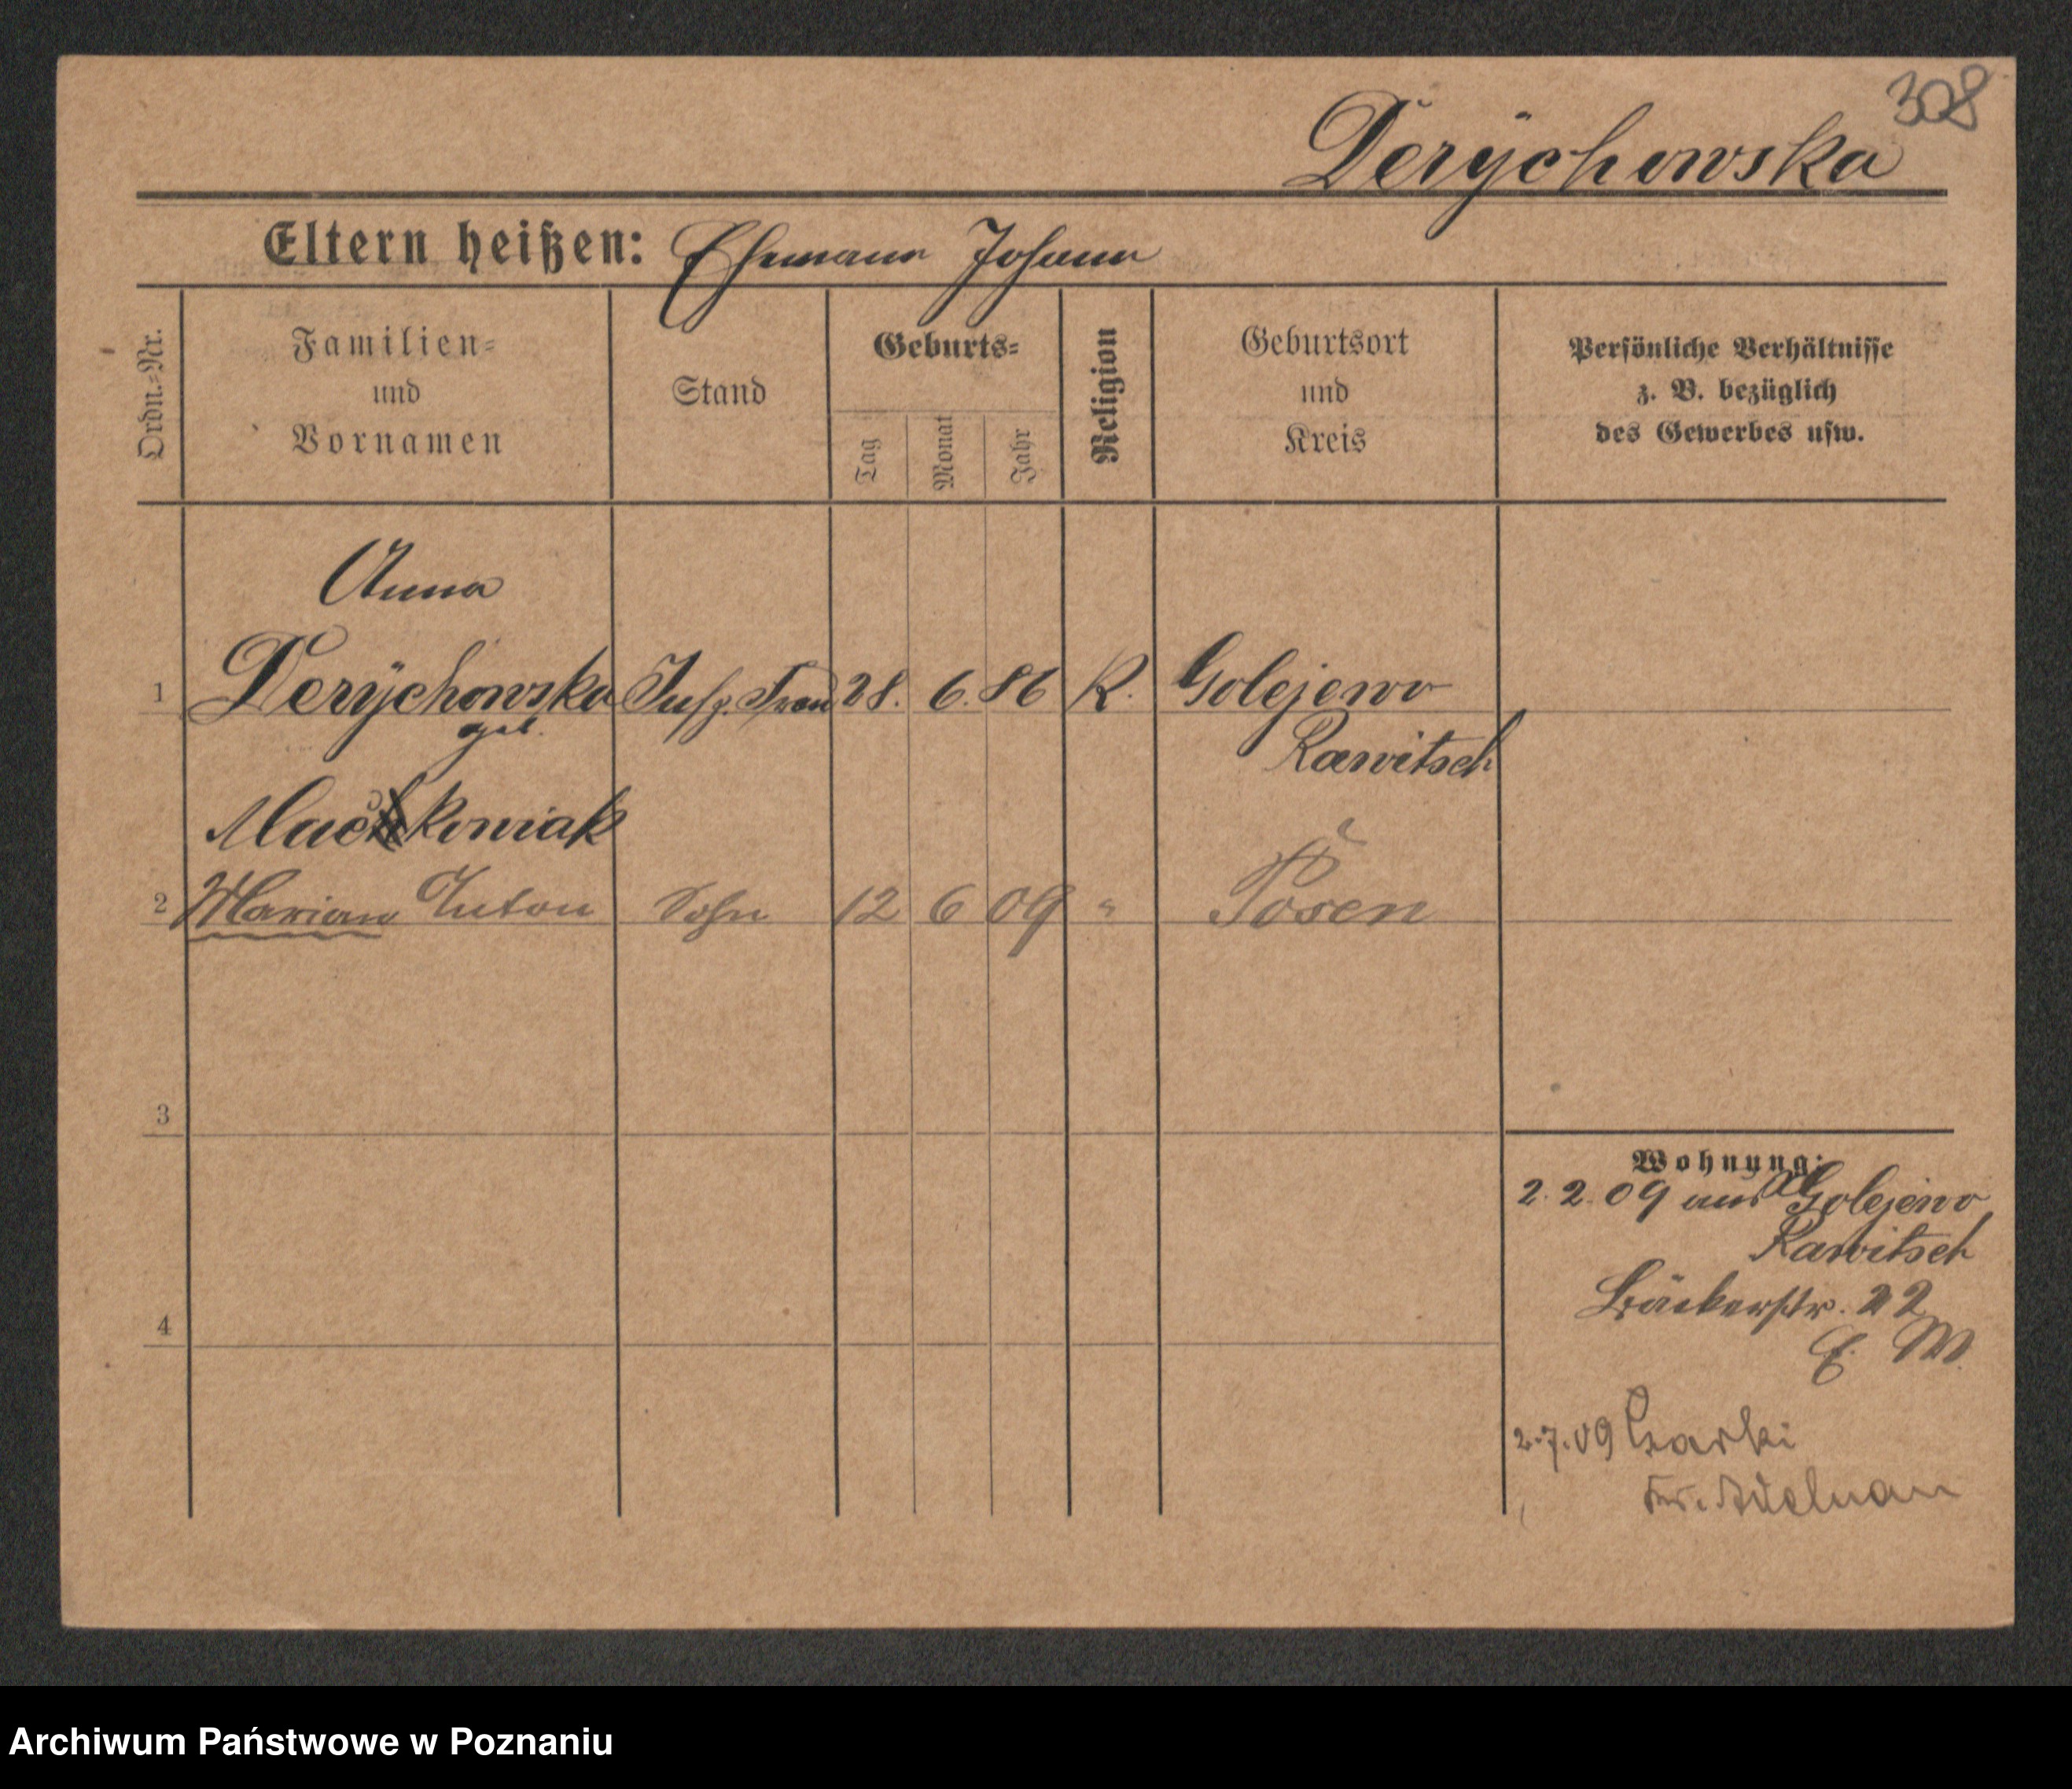 308
Derÿchowska
Eltern heißen: Ehemann Johann
Ordn.=Nr.
Familien=
und
Vornamen
Stand
Geburts=
Tag
Monat
Jahr
Religion
Geburtsort
und
Kreis
Persönliche Verhältnisse
z. B. bezüglich
des Gewerbes usw.
Anna
1 Derÿchowska Insp. Frau 28. 6. 86 K. Golejewo
geb. Rawitsch
Maćkowiak
2 Marian Anton Sohn 12 6 09 " Posen
3
Wohnung:
2. 2. 09 aus Golejewo
Rawitsch
Bäckerstr. 22
4
E. M.
2.7.09